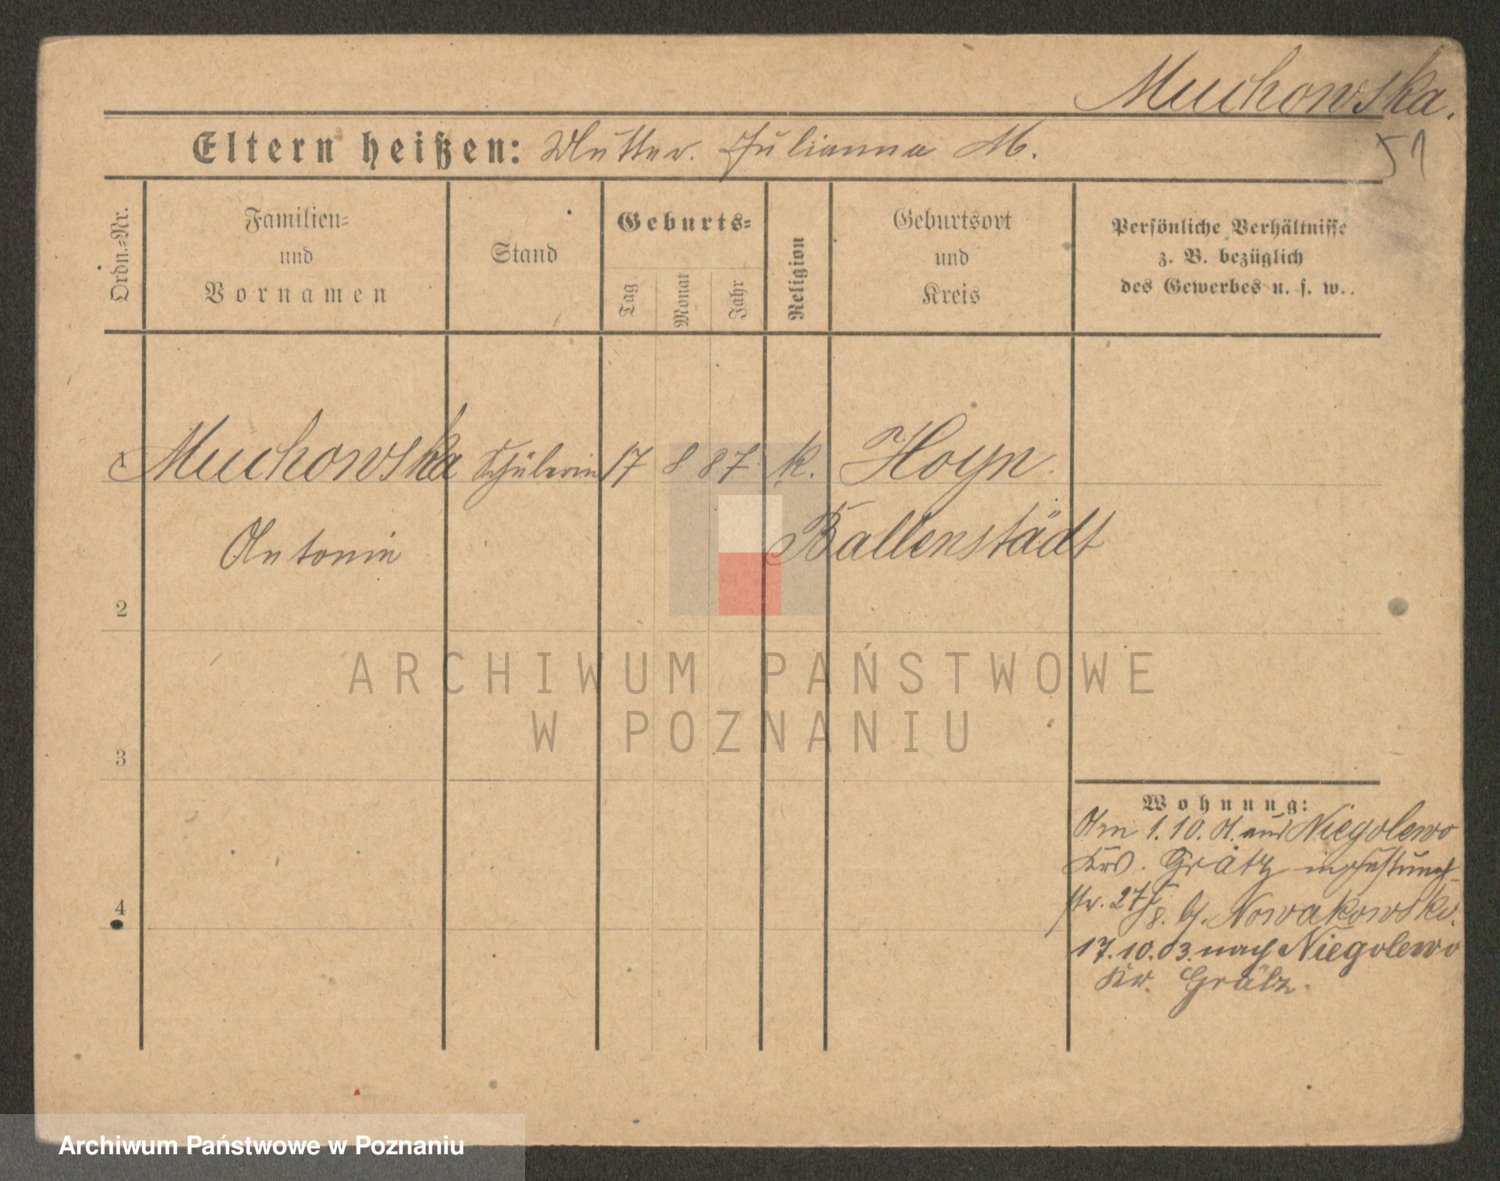 Muchowska.
51
Eltern heißen: Mutter. Julianna M.
Ordn.-Nr.
Familien-
und
Vornamen
Stand
Geburts-
Tag
Monat
Jahr
Religion
Geburtsort
und
Kreis
Persönliche Verhältnisse
z. B. bezüglich
des Gewerbes u. s. w.
1 Muchowska Schülerin 17 8 87 k. Hoyn
Antonie Ballenstädt
2
ARCHIWUM PAŃSTWOWE
W POZNANIU
3
4
Wohnung:
Am 1.10. aus Niegolewo
Krs. Grätz
str. 27 b. Nowakowski.
17.10.03. nach Niegolewo
Kr. Grätz.
Archiwum Państwowe w Poznaniu